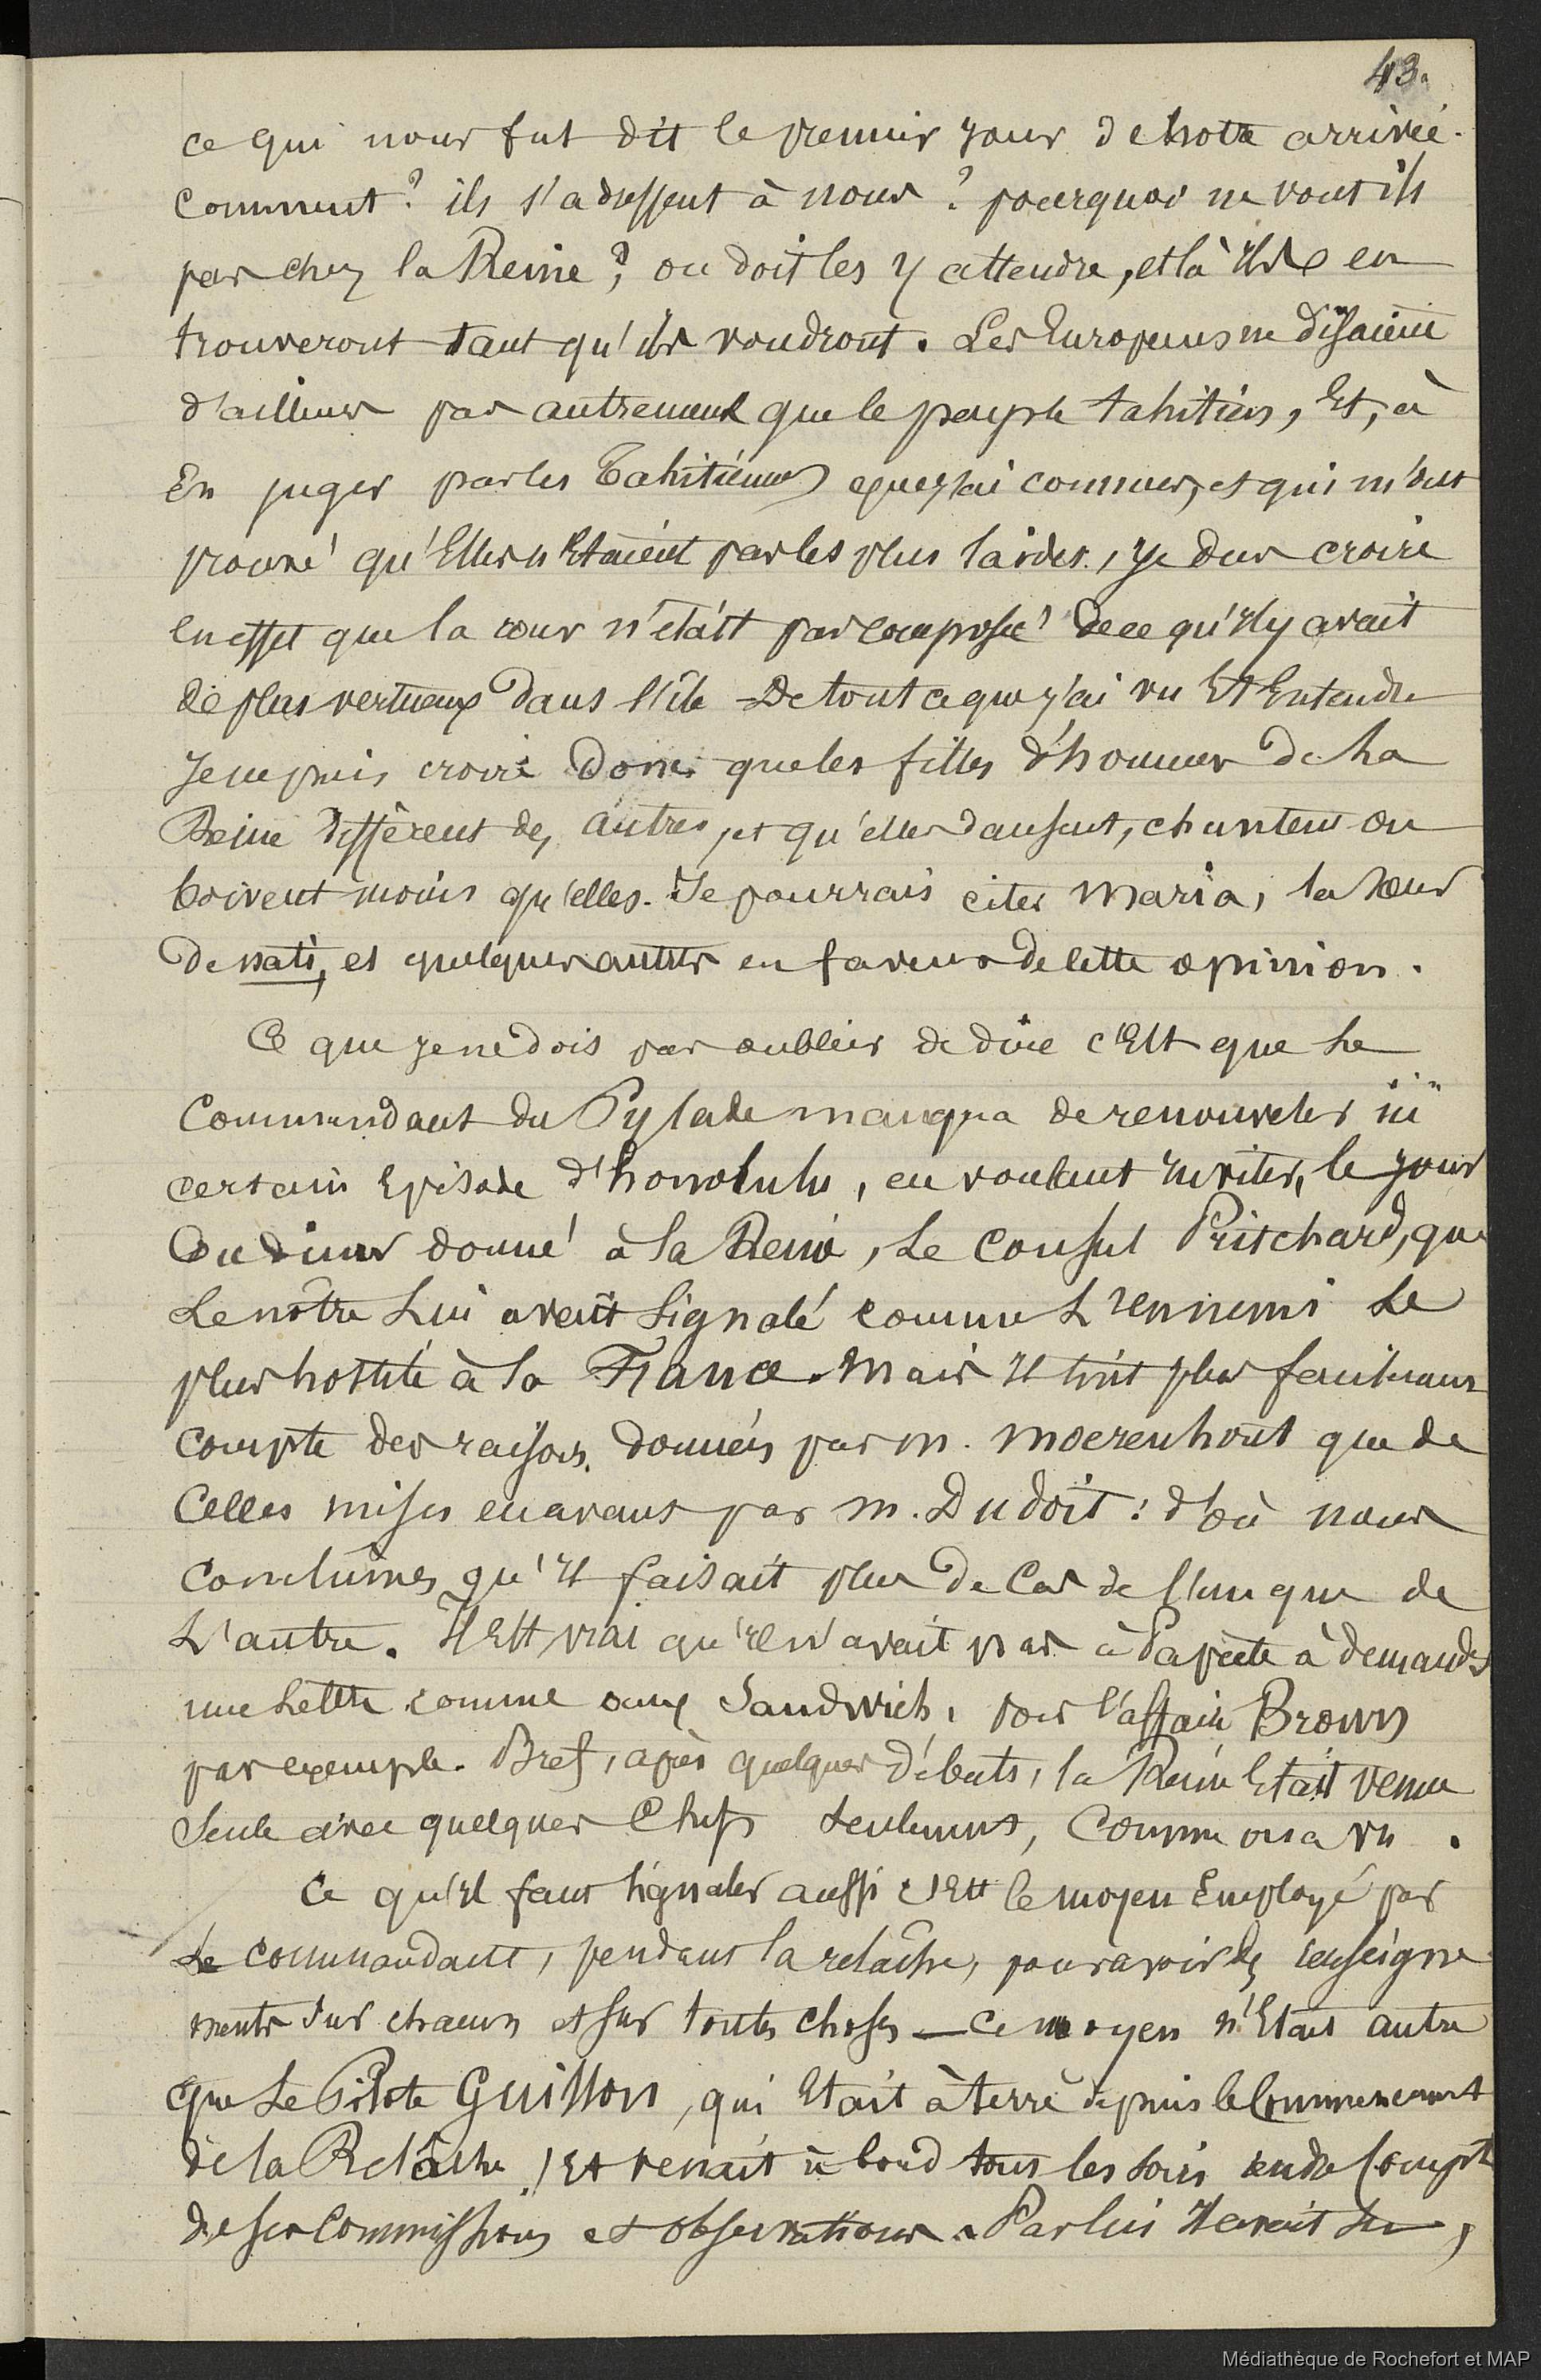 43.
ce qui nous fut dit le premier jour de notre arrivée.
comment ? ils s'adressent à nous ? pourquoi ne vont ils
pas chez la Reine ? on doit les y attendre, et là ils en
trouveront tant qu'ils voudront. Les Européens ne disaient
d'ailleurs pas autrement que le peuple tahitien, Et, à
En juger par les Tahitiennes que j'ai connues, et qui m'ont
prouvé qu'Elles n'Etaient pas les plus laides, je dus croire
en effet que la cour n'était pas composée de ce qu'il y avait
de plus vertueux dans l'île - De tout ce que j'ai vu Et Entendu
Je ne puis croire donc que les filles d'honneur de La
Reine diffèrent des autres, et qu'elles dansent, chantent ou
boivent moins qu'elles. Je pourrais citer Maria, la sœur
de nati, et quelques autres en faveur de cette opinion.
Ce que je ne dois pas oublier de dire c'Est que Le
Commandant du Pylade manqua de renouveler ici
certain Episode d'honolulu, en voulant inviter, le jour
Du diner donné à la Reine, Le Consul Pritchard, que
Le nôtre Lui avait signalé comme L'ennemi Le
plus hostile à la France. Mais Il tint plus facilement
compte des raisons données par M. Moerenhout que de
Celles mises en avant par M. Dudoit : d'où nous
conclûmes qu'Il faisait plus de Cas de l'un que de
L'autre. Il Est vrai qu'il n'avait pas à Papeete à demander
une Lettre comme aux Sandwich, pour l'affaire Brown
par exemple. Bref, après quelques débats, la Reine Etait venue
Seule avec quelques Chefs seulement, Comme on a vu.
Ce qu'il faut signaler aussi c'Est le moyen Employé par
Le commandant, pendant la relâche, pour avoir des renseigne
ments sur chacun et sur toutes choses — Ce moyen n'Etait autre
que Le Pilote Guillon, qui Etait à terre depuis le Commencement
de la Relâche, Et venait à bord tous les soirs rendre Compte
de ses Commissions et observations. Par lui Il avait su,
Médiathèque de Rochefort et MAP